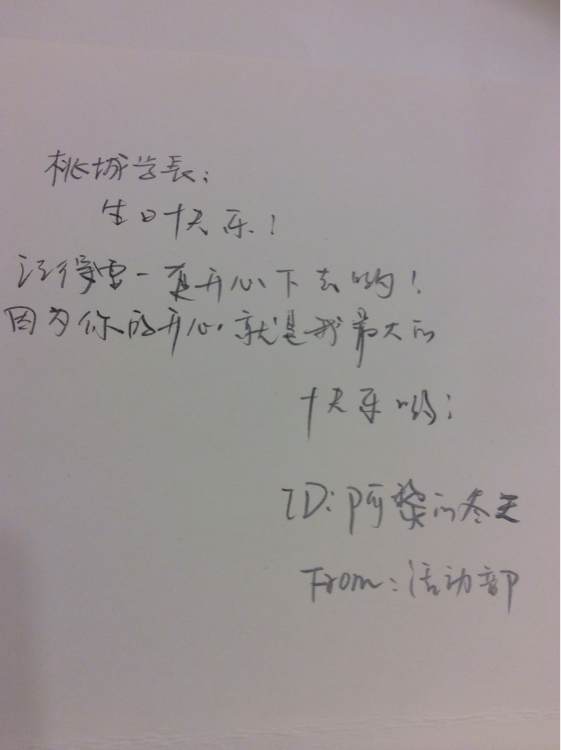 桃城学長:
生日快乐!
记得要一直开心下去哟!
因为你的开心就是我最大的
快乐哟:
ID:阿柒的冬天
From:活动部